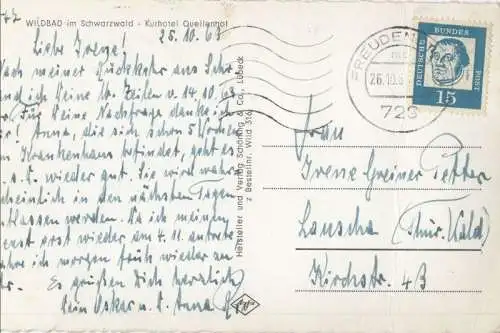 WILDBAD im Schwarzwald - Kurhotel Quellenhof
25.10.63
Liebe Irene!
Nach meiner Rückkehr aus
fand ich Deine lb. Zeilen v. 14.10.63
vor. Für Deine Nachfrage danke ich
Dir! Anna, die sich schon 5 Wochen
im Krankenhaus befindet, geht es
wieder gut. Sie wird wahr
scheinlich in den nächsten Tagen
entlassen werden. Da ich meinen
erst wieder am 4.11. antrete
fahre ich morgen früh wieder
Es grüßen Dich herzlich
Dein Oskar u. Anna
Hersteller und Verlag Schöning & Co., Lübeck
Bestellnr. Wild 316
FREUDEN
26.10.6
726
DEUTSCHE BUNDESPOST
15
Frau
Irene Greiner Petter
Lauscha (Thür. Wald)
Kirchstr. 43